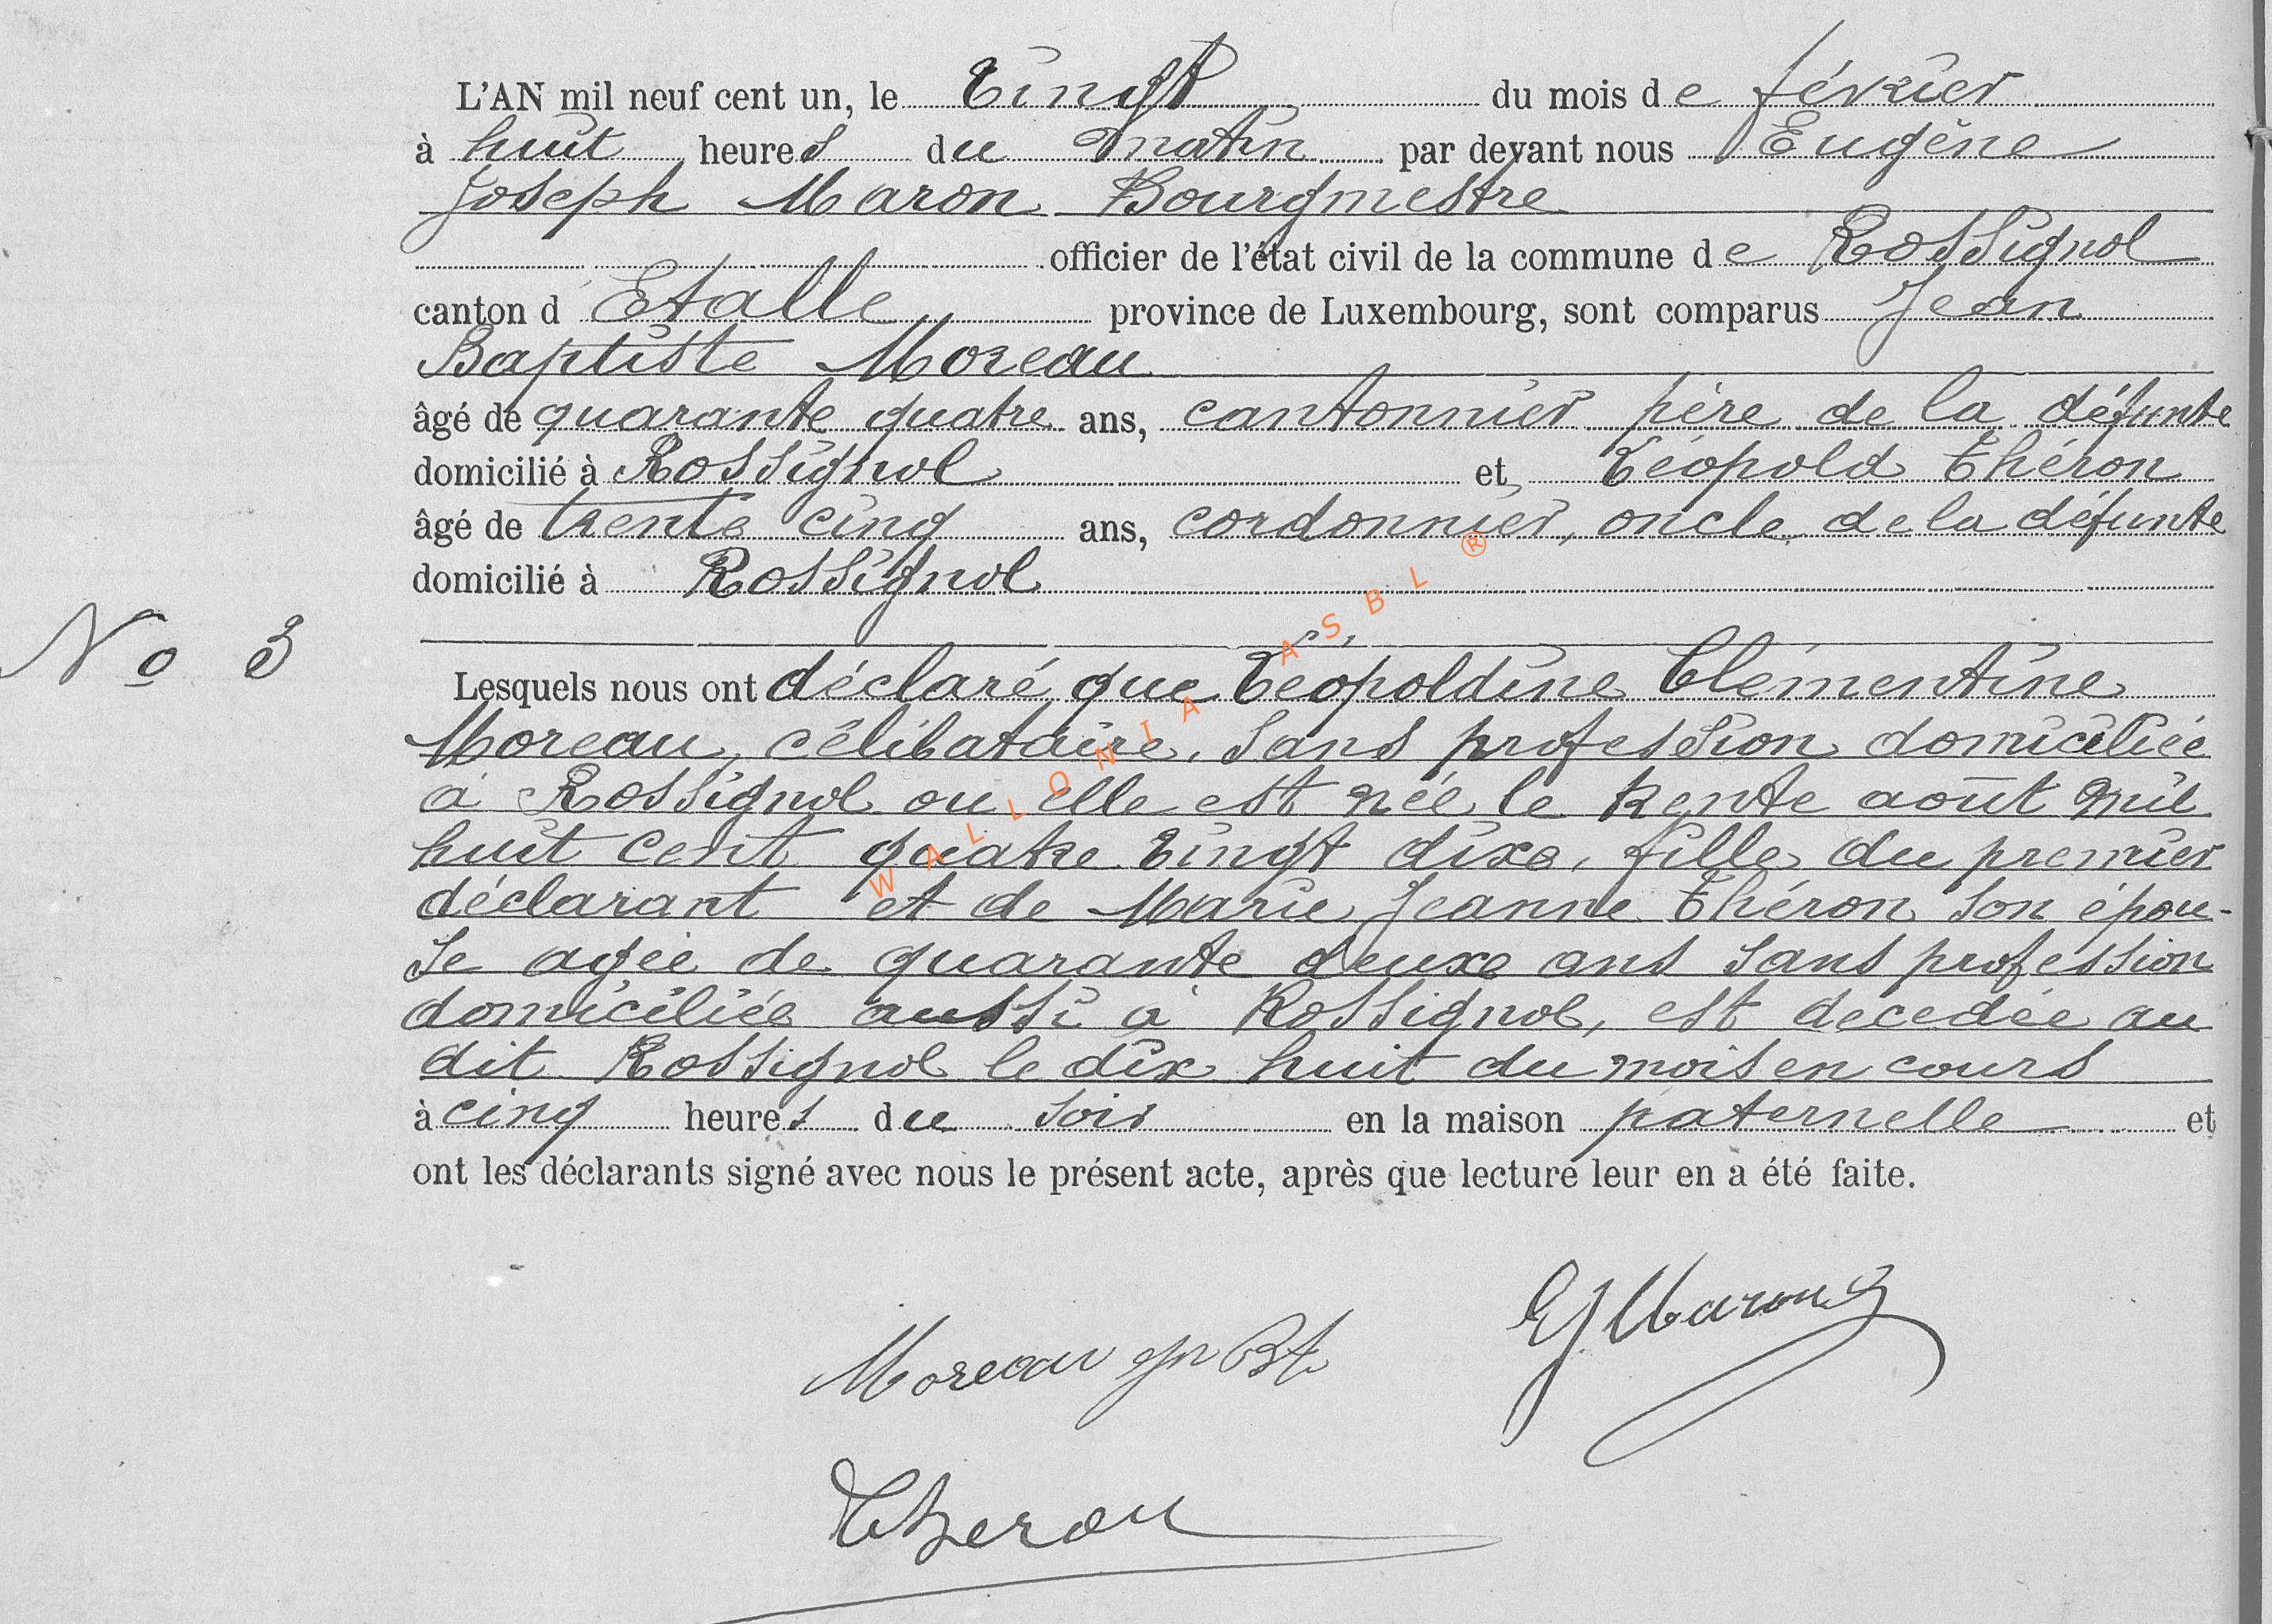 L'AN mil neuf cent un, le vingt du mois de février
à huit heures du matin par devant nous Eugène
Joseph Maron Bourgmestre
officier de l'état civil de la commune de Rossignol
canton d Etalle province de Luxembourg, sont comparus Jean
Baptiste Moreau
âgé de quarante quatre ans, cantonnier père de la défunte
domicilié à Rossignol et Léopold Théron
âgé de trente cinq ans, cordonnier, oncle de la défunte
domicilié à Rossignol
No 3
Lesquels nous ont déclaré que Léopoldine Clémentine
Moreau, célibataire, sans profession domiciliée
à Rossignol ou elle est née le trente août mil
huit cent quatre vingt dix, fille du premier
déclarant et de Marie Jeanne Théron son épou-
se agée de quarante deux ans sans profession
domiciliée aussi à Rossignol, est décédée au
dit Rossignol le dix huit du mois en cours
à cinq heures du soir en la maison paternelle et
ont les déclarants signé avec nous le présent acte, après que lecture leur en a été faite.
EJMaron
Moreau Jn Bte
Theron
WALLONIA ASBL ®